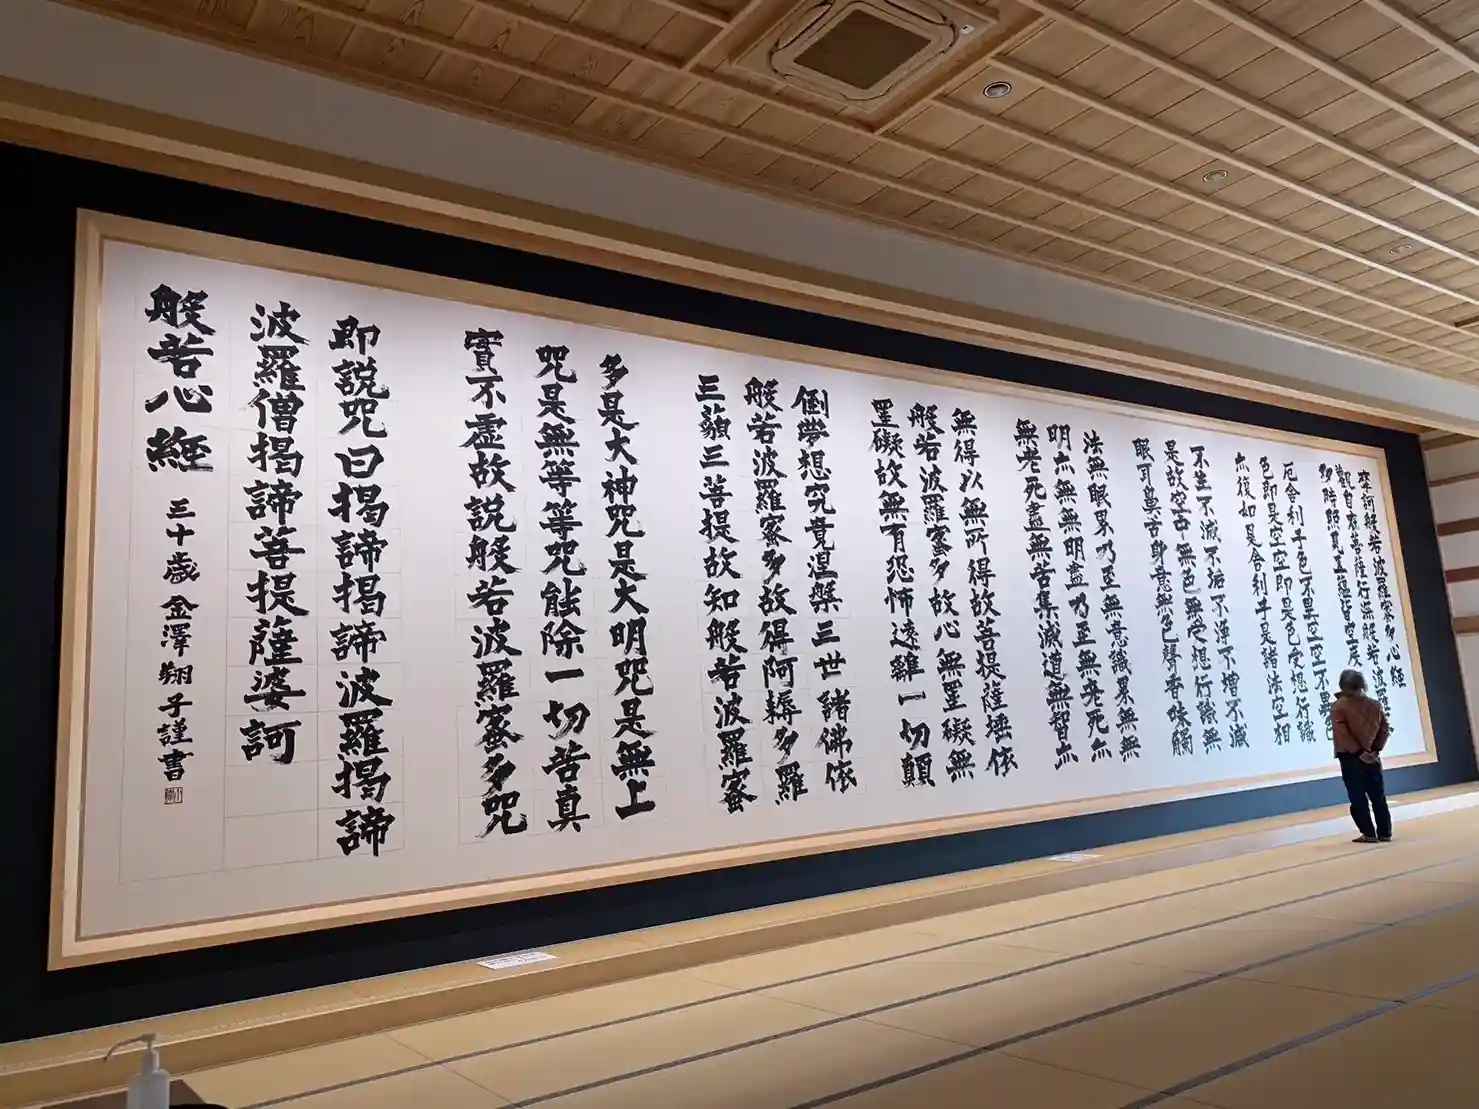 摩訶般若波羅蜜多心經
觀自在菩薩行深般若波羅
多時照見五蘊皆空度
厄舍利子色不異空空不異色
色即是空空即是色受想行識
亦復如是舍利子是諸法空相
不生不滅不垢不淨不增不減
是故空中無色無受想行識無
眼耳鼻舌身意無色聲香味觸
法無眼界乃至無意識界無無
明亦無無明盡乃至無老死亦
無老死盡無苦集滅道無智亦
無得以無所得故菩提薩埵依
般若波羅蜜多故心無罣礙無
罣礙故無有恐怖遠離一切顛
倒夢想究竟涅槃三世諸佛依
般若波羅蜜多故得阿耨多羅
三藐三菩提故知般若波羅蜜
多是大神咒是大明咒是無上
咒是無等等咒能除一切苦真
實不虚故説般若波羅蜜多咒
即説咒曰掲諦掲諦波羅掲諦
波羅僧掲諦菩提薩婆訶
般若心經 三十歳 金澤翔子謹書